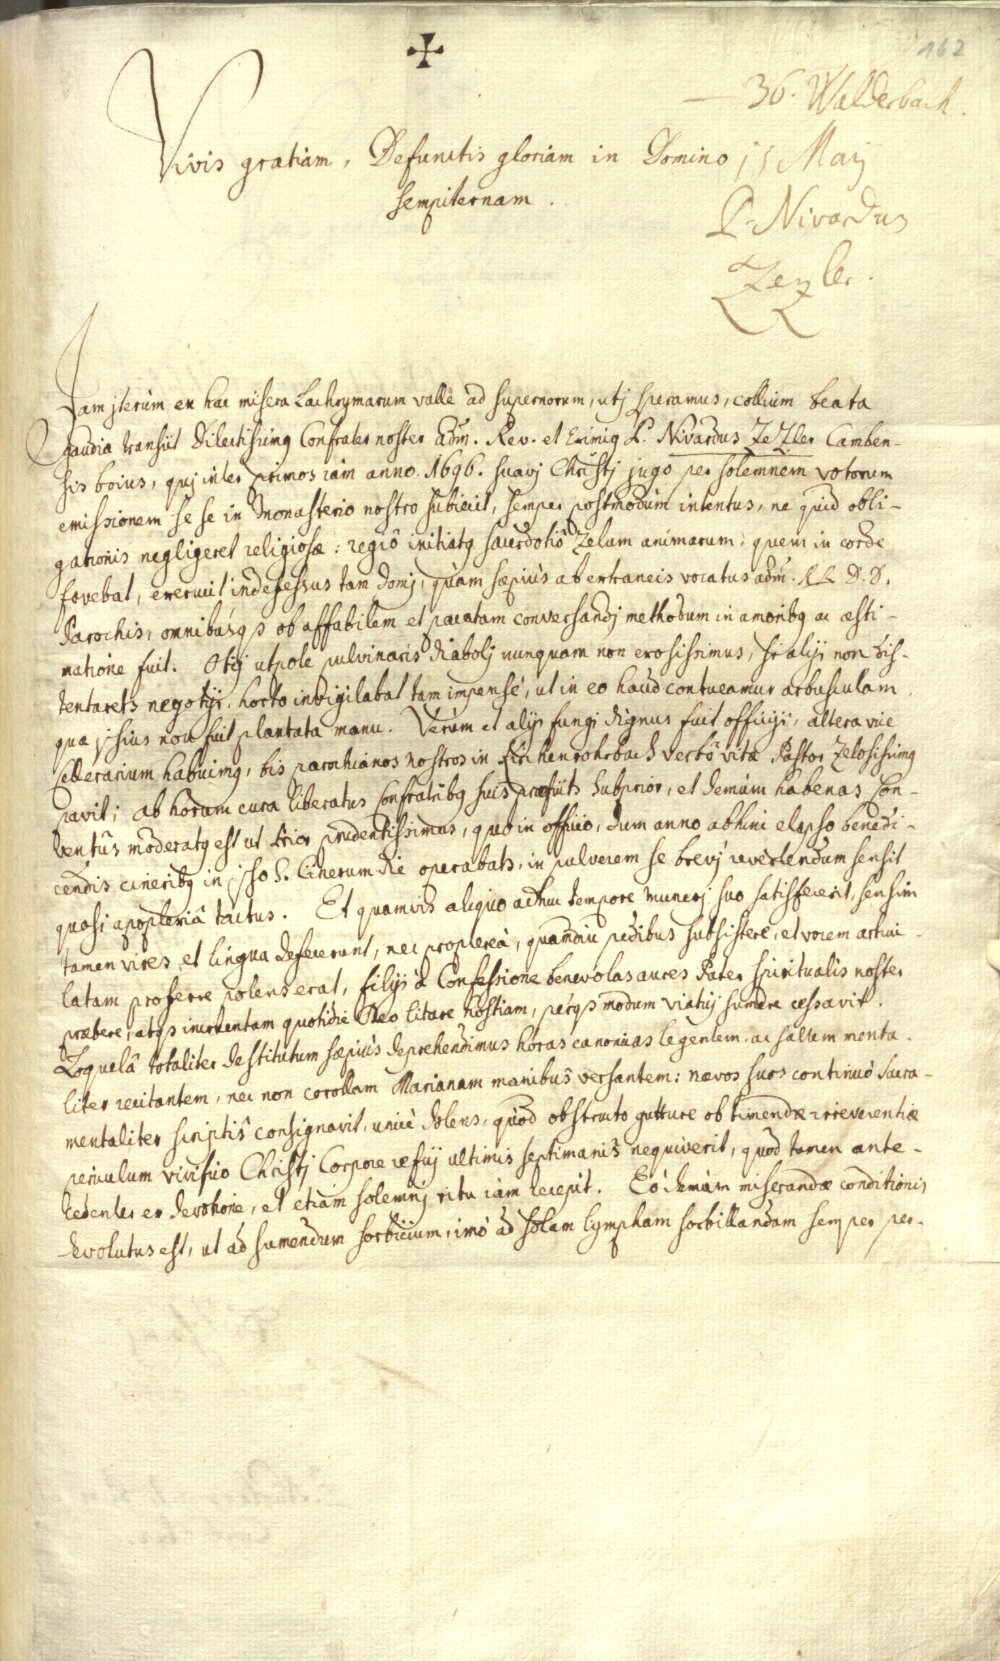 162
36. Walderbach.
Vivis gratiam, Defunctis gloriam in Domino
sempiternam.
15 Maij
P. Nivardus
Zezler.
Jam jterùm ex hac misera Lachrymarum valle ad supernorum, utj speramus, collium beata
gaudia transiit Dilectissimq Confrater noster adm. Rev. et Eximiq P. Nivardus Zezler Camben-
sis boius, quj inter primos iàm anno 1696. suavj Christj jugo per solemnem votorum
emissionem se se in Monasterio nostro subiecit, semper postmodùm intentus, ne quid obli-
gationis negligeret religiosæ: regiô initiatq sacerdotiô Zelum animarum, quem in corde
fovebat, exeruit indefessus tam domj, quàm sæpiùs ab extraneis vocatus adm. RR. D. D.
Parochis, omnibusq3 ob affabilem et pacatam conversandj methodum in amoribq ac æsti-
matione fuit. Otij utpote pulvinaris Diabolj nunquam non exosissimus, si alijs non dis-
tentarets negotijs, horto invigilabat tam impensè, ut in eo haud contueamur arbusculam
quæ jpsius non fuit plantata manu. Verùm et alijs fungj dignus fuit officijs, altera vice
Cellerarium habuimq, bis parochianos nostros in Kirchenrohrbach verbô vitæ Pastor Zelosissimq
pavit; ab horum cura liberatus Confratribq suis præfuit Subprior, et demùm habenas Con-
ventûs moderatq est ut Prior prudentissimus, quo in officio, dum anno abhinc elapso benedi-
cendis cineribq in jpso S. Cinerum die operabats, in pulverem se brevj revertendum sensit
quasi apoplexiâ tactus. Et quamvis aliquo adhuc tempore munerj suo satisfecerit, sensim
tamen vires et lingua defecerunt, nec proptereà, quamdiu pedibus subsistere, et vocem articu-
latam proferre potens erat, filijs à Confessione benevolas aures Pater spiritualis noster
præbere, atq3 incruentam quotidie Deo litare hostiam, perq3 modum viatij sumere cessavit.
Loquelâ totaliter destitutum sæpiùs deprehendimus horas canonicas legentem, ac saltem menta-
liter recitantem, nec non corollam Marianam manibus versantem: nævos suos continuò sacra-
mentaliter scriptis consignavit, unicè dolens, quòd obstructo gutture ob timendæ irreverentiæ
periculum vivifico Christj Corpore reficj ultimis septimanis nequiverit, quod tamen ante-
cedenter ex devotione, et etiàm solemnj ritu iàm recepit. Eò demùm miserandæ conditionis
devolutus est, ut ad sumendum sorbicium, imò ad solam lympham sorbillandam semper per-